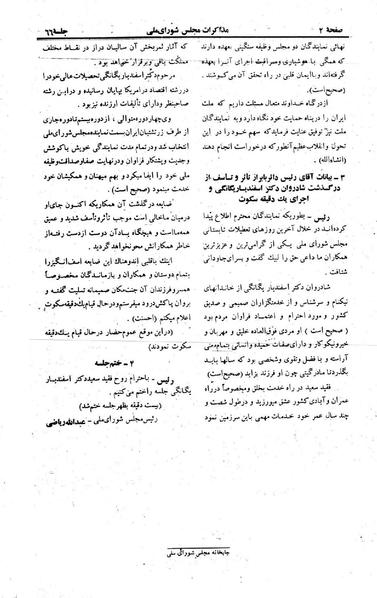 صفحهٔ ۲
مذاکرات مجلس شورای ملی
جلسهٔ ۶۶
نهائی نمایندگان دو مجلس وظیفه سنگینی بعهده دارند
که همگی با هوشیاری و مراقبت اجرای آنرا بعهده
گرفته‌اند و با ایمان قلبی در راه تحقق آن می‌کوشند.
از درگاه خداوند متعال مسئلت داریم که ملت
ایران را در پناه حمایت خود نگاه دارد و به نمایندگان
ملت نیز توفیق عنایت فرماید که سهم خود را در این
تحول و انقلاب عظیم آنطور که درخواست انجام دهند
(انشاءالله).
۳ - بیانات آقای رئیس دائر بابراز تأثر و تأسف از
درگذشت شادروان دکتر اسفندیار یگانگی و
اجرای یك دقیقه سکوت
رئیس - بطوریکه نمایندگان محترم اطلاع پیدا
کرده‌اند در خلال آخرین روزهای تعطیلات تابستانی
مجلس شورای ملی یکی از گرامی‌ترین و عزیزترین
همکاران ما داعی حق را لبیك گفت و بسرای جاودانی
شتافت.
شادروان دکتر اسفندیار یگانگی از خاندانهای
نیکنام و سرشناس و از خدمتگزاران صمیمی و صدیق
کشور و مورد احترام و اعتماد فراوان مردم بود
(صحیح است) او مردی فوق‌العاده خلیق و مهربان و
خیر و نیکوکار و دارای صفات حمیده و انسانی بتمام معنی
آراسته و با فضل و تقوی وشخصی بود که سالها باید
بگذرد تا مادر گیتی چون او فرزند بزاید (صحیح است)
فقید سعید در راه خدمت بخلق و مخصوصاً در راه
عمران و آبادی کشور عشق میورزید و در طول شصت و
چند سال عمر خود خدمات مهمی باین سرزمین نمود
که آثار ثمربخش آن سالیان دراز در نقاط مختلف
مملکت باقی و برقرار خواهد بود.
مرحوم دکتر اسفندیار یگانگی تحصیلات عالی خود را
در رشته اقتصاد در امریکا بپایان رسانیده و در این رشته
صاحبنظر و دارای تألیفات ارزنده نیز بود.
وی چهار دوره متوالی، از دوره بیستم تا دوره جاری
از طرف زرتشتیان ایران بسمت نماینده مجلس شورای ملی
انتخاب شد و در تمام مدت نمایندگی خویش با کوشش
وجدیت و پشتکار فراوان و در نهایت صفا و صداقت وظیفه
ملی خود را ایفا کرد و بهم میهنان و همکیشان خود
خدمت مینمود (صحیح است).
ضایعه درگذشت آن همکار یکه اکنون جای او
در میان ما خالی است موجب تأثر و تأسف شدید و عمیق
همه ما است و هیچگاه یاد آن دوست از دست رفته از
خاطر همکارانش محو نخواهد گردید.
اینك با قلبی اندوهناك این ضایعه اسف‌انگیز را
بتمام دوستان و همکاران و بازماندگان مخصوصاً
همسر و فرزندان آن جنت‌مکان صمیمانه تسلیت گفته و
بروان پاکش درود میفرستم و در حال قیام یکدقیقه سکوت
اعلام میکنم (احسنت).
(در این موقع عموم حضار در حال قیام یك دقیقه
سکوت نمودند)
۴ - ختم جلسه
رئیس - باحترام روح فقید سعید دکتر اسفندیار
یگانگی جلسه را ختم می‌کنیم.
(بیست دقیقه بظهر جلسه ختم شد)
رئیس مجلس شورای ملی - عبدالله ریاضی
چاپخانه مجلس شورای ملی